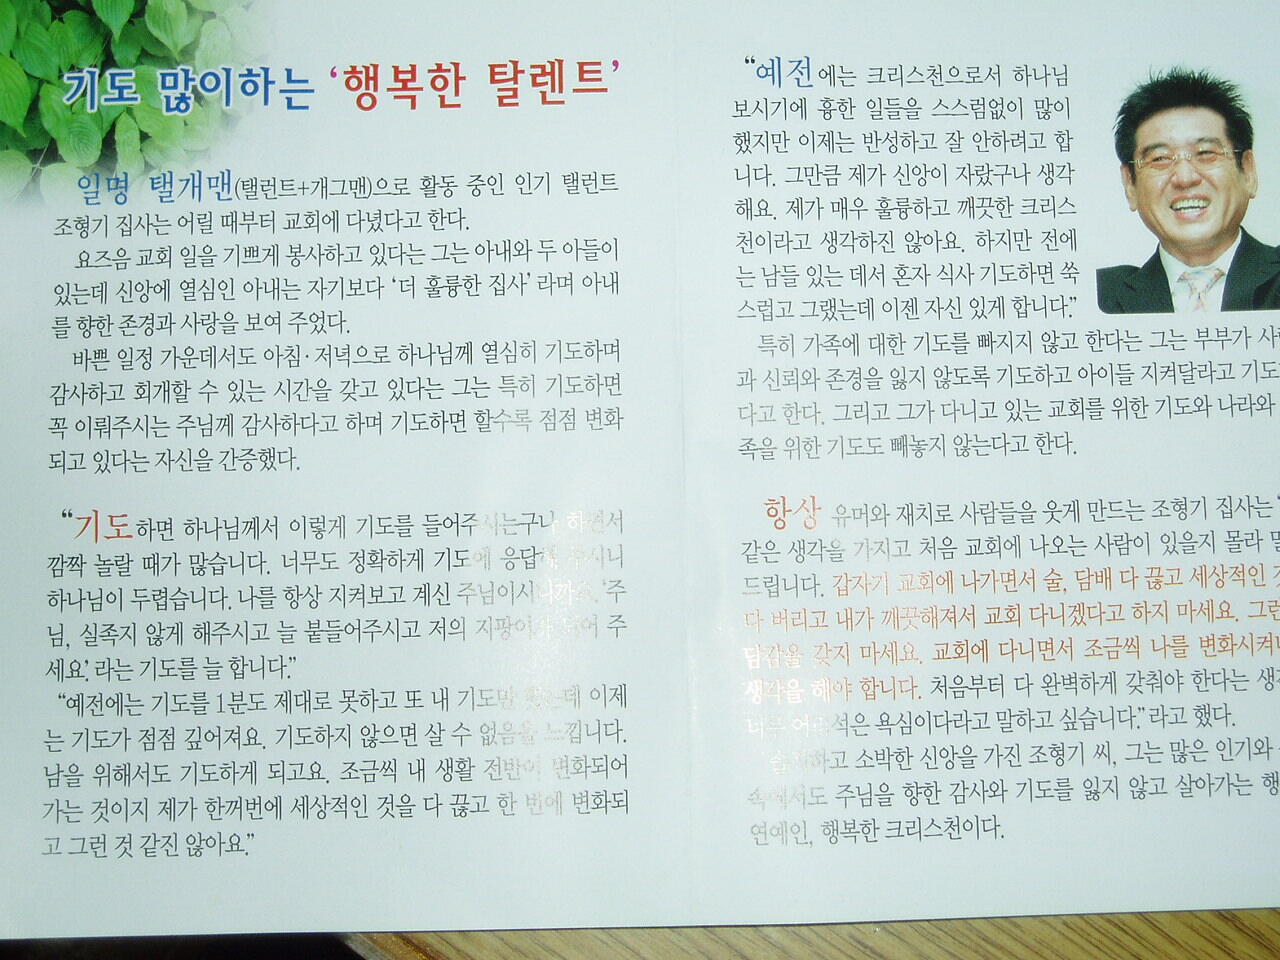 기도 많이하는 ‘행복한 탈렌트’
일명 탤개맨(탤런트+개그맨)으로 활동 중인 인기 탤런트
조형기 집사는 어릴 때부터 교회에 다녔다고 한다.
요즈음 교회 일을 기쁘게 봉사하고 있다는 그는 아내와 두 아들이
있는데 신앙에 열심인 아내는 자기보다 ‘더 훌륭한 집사’ 라며 아내
를 향한 존경과 사랑을 보여 주었다.
바쁜 일정 가운데서도 아침·저녁으로 하나님께 열심히 기도하며
감사하고 회개할 수 있는 시간을 갖고 있다는 그는 특히 기도하면
꼭 이뤄주시는 주님께 감사하다고 하며 기도하면 할수록 점점 변화
되고 있다는 자신을 간증했다.
“기도하면 하나님께서 이렇게 기도를 들어주시는구나 하면서
깜짝 놀랄 때가 많습니다. 너무도 정확하게 기도에 응답해 주시니
하나님이 두렵습니다. 나를 항상 지켜보고 계신 주님이시니까요. ‘주
님, 실족지 않게 해주시고 늘 붙들어주시고 저의 지팡이가 되어 주
세요’ 라는 기도를 늘 합니다.”
“예전에는 기도를 1분도 제대로 못하고 또 내 기도만 했는데 이제
는 기도가 점점 깊어져요. 기도하지 않으면 살 수 없음을 느낍니다.
남을 위해서도 기도하게 되고요. 조금씩 내 생활 전반이 변화되어
가는 것이지 제가 한꺼번에 세상적인 것을 다 끊고 한 번에 변화되
고 그런 것 같진 않아요.”
“예전에는 크리스천으로서 하나님
보시기에 흉한 일들을 스스럼없이 많이
했지만 이제는 반성하고 잘 안하려고 합
니다. 그만큼 제가 신앙이 자랐구나 생각
해요. 제가 매우 훌륭하고 깨끗한 크리스
천이라고 생각하진 않아요. 하지만 전에
는 남들 있는 데서 혼자 식사 기도하면 쑥
스럽고 그랬는데 이젠 자신 있게 합니다.”
특히 가족에 대한 기도를 빠지지 않고 한다는 그는 부부가
과 신뢰와 존경을 잃지 않도록 기도하고 아이들 지켜달라고 기도
다고 한다. 그리고 그가 다니고 있는 교회를 위한 기도와 나라와
족을 위한 기도도 빼놓지 않는다고 한다.
항상 유머와 재치로 사람들을 웃게 만드는 조형기 집사는
같은 생각을 가지고 처음 교회에 나오는 사람이 있을지 몰라
드립니다. 갑자기 교회에 나가면서 술, 담배 다 끊고 세상적인
다 버리고 내가 깨끗해져서 교회 다니겠다고 하지 마세요.
담감을 갖지 마세요. 교회에 다니면서 조금씩 나를
생각을 해야 합니다. 처음부터 다 완벽하게 갖춰야 한다는
너무 어리석은 욕심이다라고 말하고 싶습니다.” 라고 했다.
소박한 신앙을 가진 조형기 씨, 그는 많은 인기와
속에서도 주님을 향한 감사와 기도를 잃지 않고 살아가는
연예인, 행복한 크리스천이다.